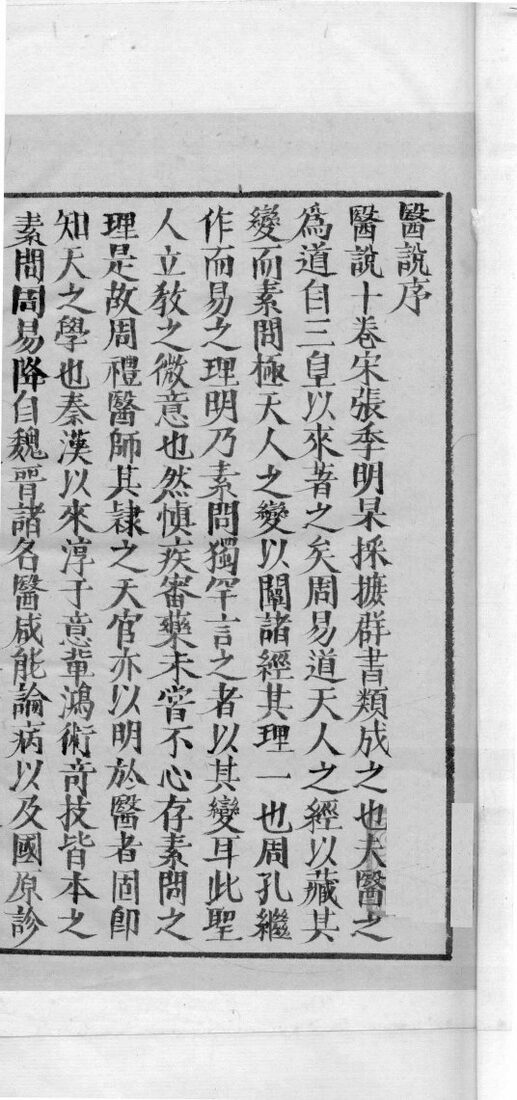 醫說序
醫說十卷宋張季明杲採摭群書類成之也夫醫之
爲道自三皇以來著之矣周易道天人之經以藏其
變而素問極天人之變以闡諸經其理一也周孔繼
作而易之理明乃素問獨罕言之者以其變耳此聖
人立敎之微意也然愼疾審藥未嘗不心存素問之
理是故周禮醫師其隷之天官亦以明於醫者固卽
知天之學也秦漢以來淳于意輩鴻術奇技皆本之
素問周易降自魏晋諸名醫咸能論病以及國原診